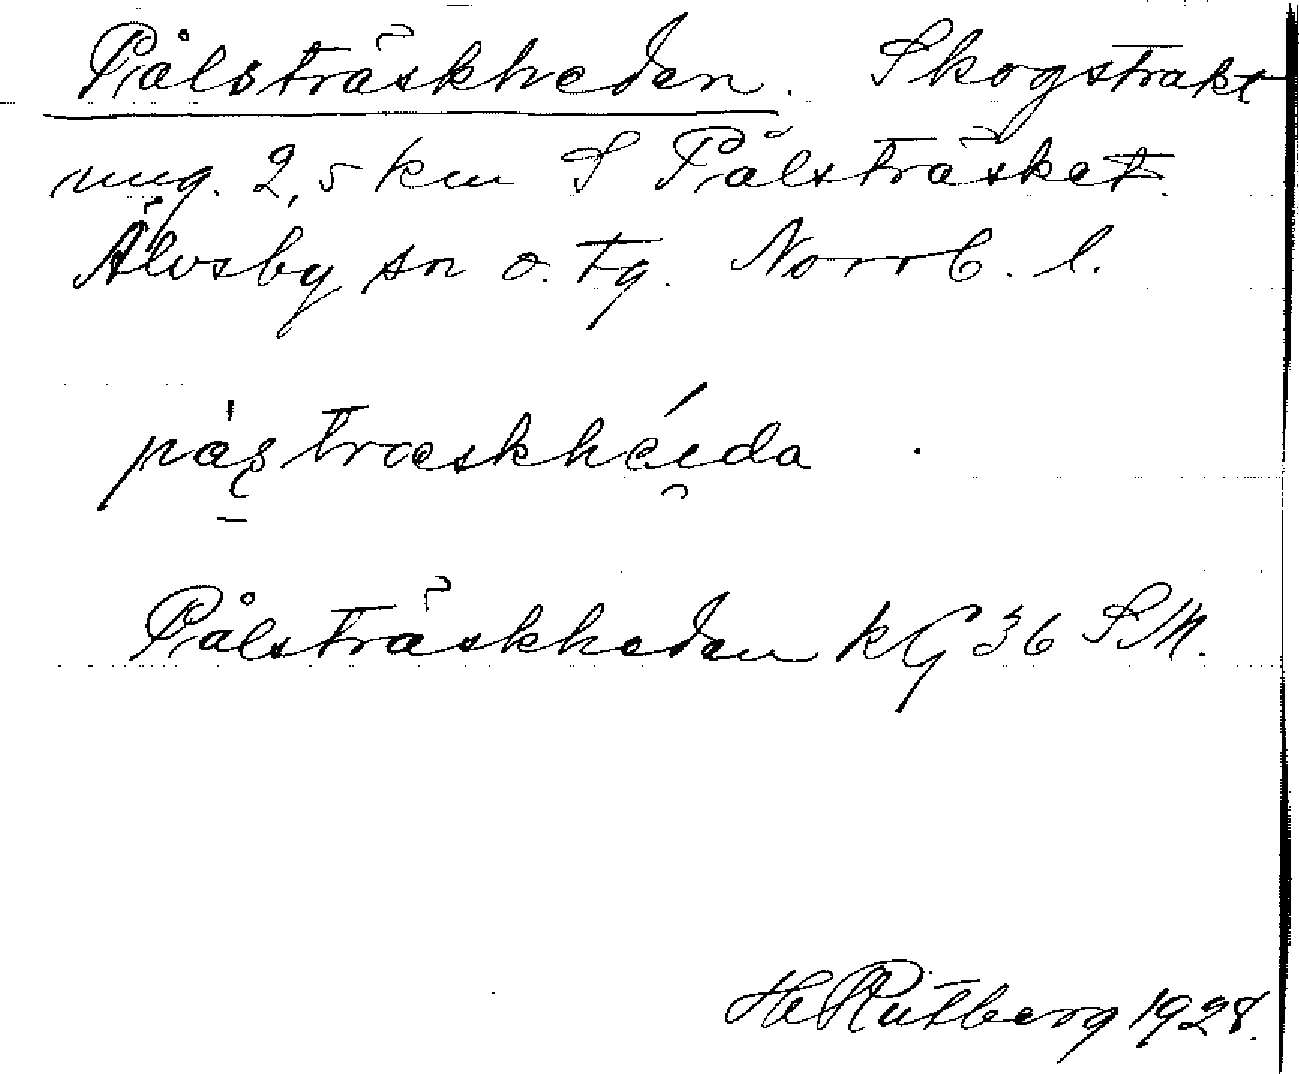 Pålsträskheden. Skogstrakt
ung. 2,5 km S Pålsträsket.
Älvsby sn o. tg. Norrb. l.
pàştræskhéı̯da
Pålsträskheden kG 36 SM.
H Rutberg 1928.